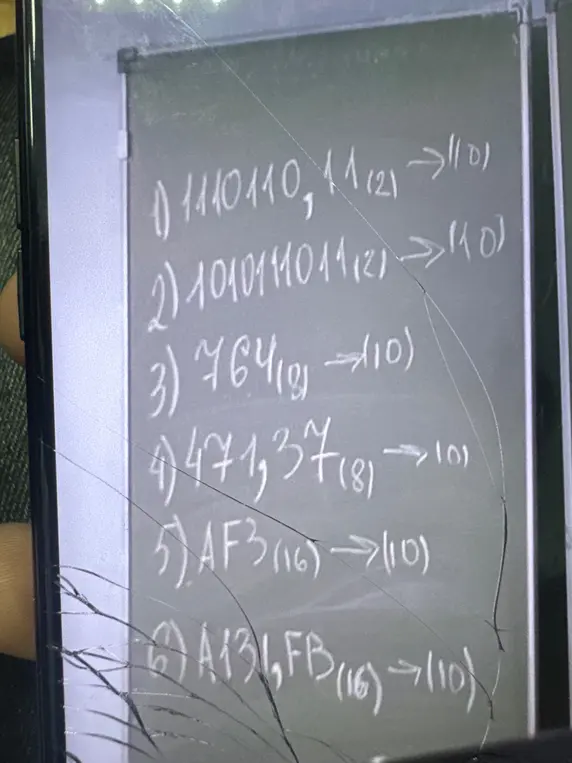 1) 1110110,11(2) →(10)
2) 1010111011(2) →(10)
3) 764(8) →(10)
4) 471,37(8) →(10)
5) AF3(16) →(10)
6) A131,FB(16) →(10)